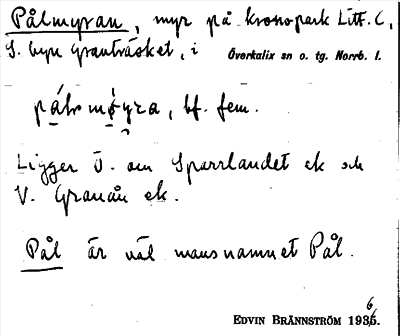 Pålmyran, myr på kronopark Litt. C,
S. byn Granträsket, i Överkalix sn o. tg. Norrb. l.
bf. fem.
Ligger Ö. om Sparrlandet ek och
V. Granån ek.
Pål är väl mansnamnet Pål.
EDVIN BRÄNNSTRÖM 1936.